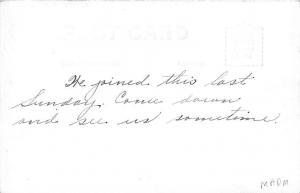 We joined this last
Sunday. Come down
and see us sometime.
MADM